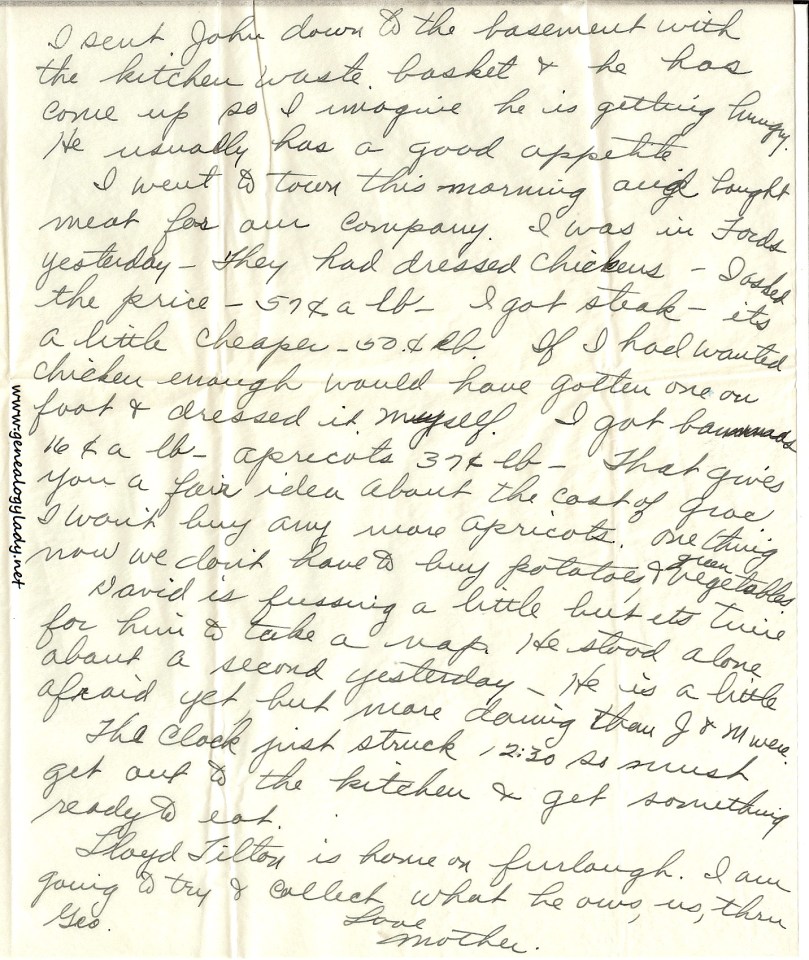 I sent John down to the basement with
the kitchen waste basket & he has
come up so I imagine he is getting hungry.
He usually has a good appetite
I went to town this morning and bought
meat for our company. I was in Fords
yesterday – They had dressed chickens – I asked
the price – 57¢ a lb – I got steak – its
a little cheaper – 50¢ lb. If I had wanted
chicken enough would have gotten one on
foot & dressed it myself. I got bananas
16¢ a lb – apricots 37¢ lb – That gives
you a fair idea about the cost of groc
I won't buy any more apricots. One thing
now we don't have to buy potatoes, & green vegetables
David is fussing a little but its time
for him to take a nap. He stood alone
about a second yesterday – He is a little
afraid yet, but more daring than J & M were.
The clock just struck 12:30 so must
get out to the kitchen & get something
ready to eat.
Lloyd Tilton is home on furlough. I am
going to try & collect what he ows, us, thru
Geo.
Love
Mother.
www.genealogylady.net